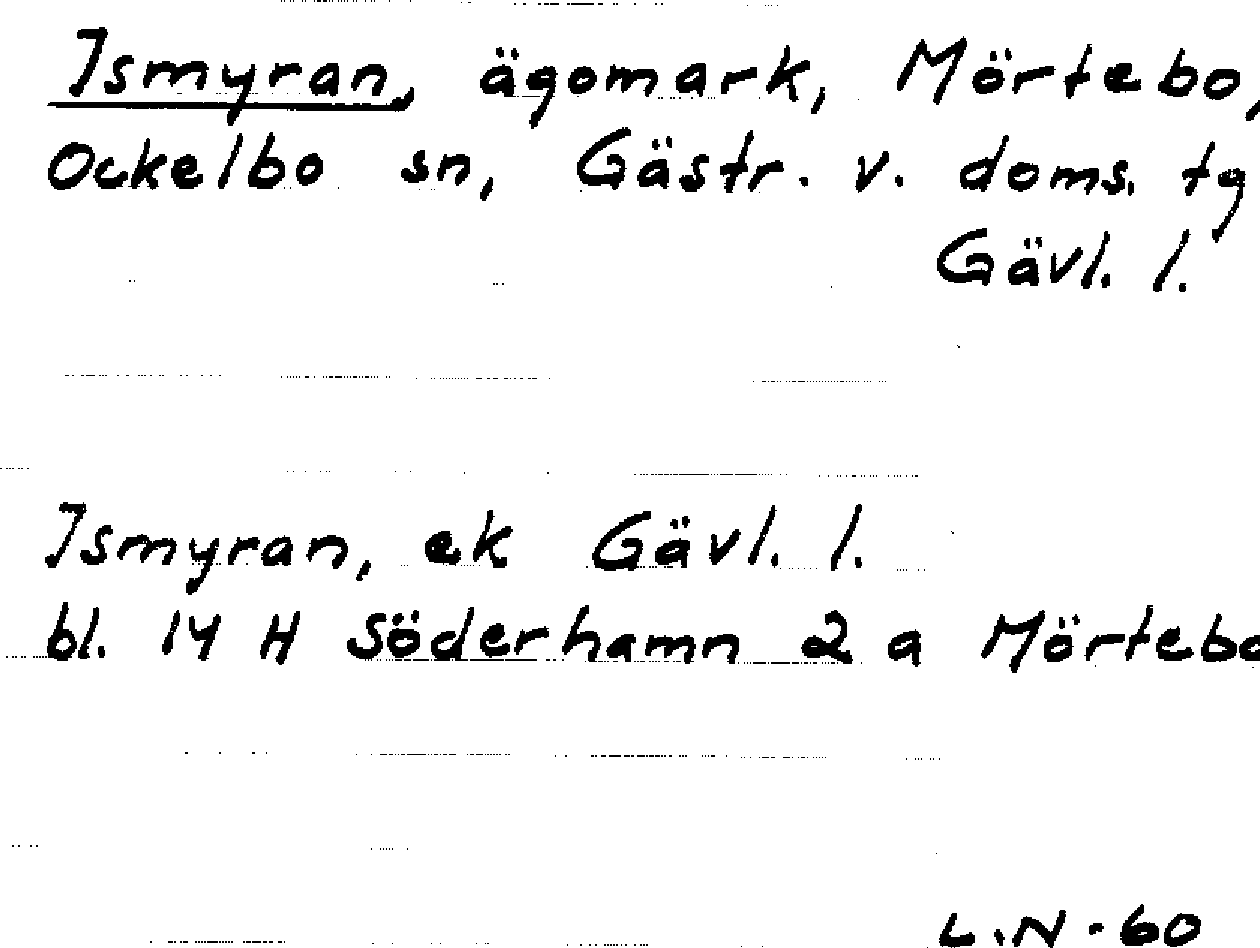 Ismyran, ägomark, Mörtebo,
Ockelbo sn, Gästr. v. doms. tg
Gävl. l.
Ismyran, ek Gävl. l.
bl. 14 H Söderhamn 2 a Mörtebo
L.N - 60